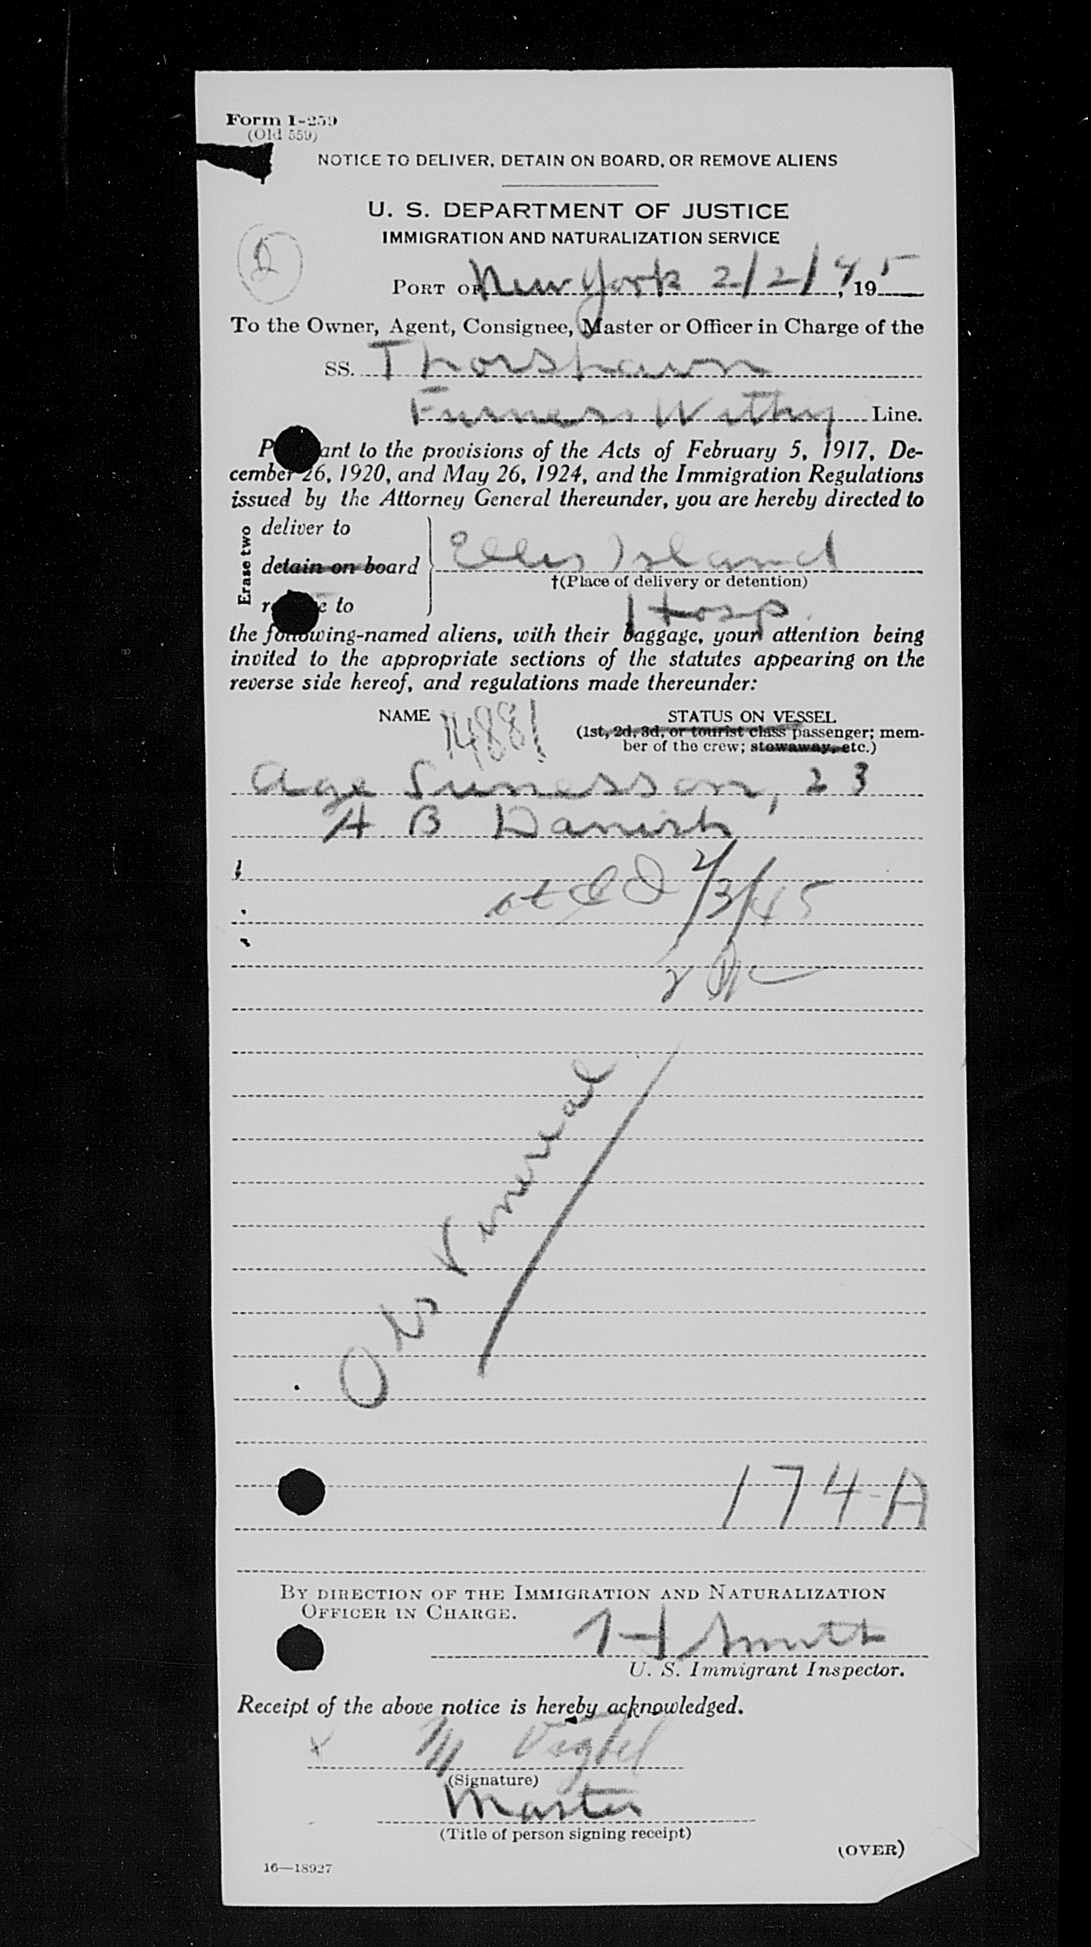 Form I-259
(Old 559)
NOTICE TO DELIVER, DETAIN ON BOARD, OR REMOVE ALIENS
U. S. DEPARTMENT OF JUSTICE
IMMIGRATION AND NATURALIZATION SERVICE
PORT OF New York 2/2/45, 19
To the Owner, Agent, Consignee, Master or Officer in Charge of the
SS. Thorshavn
Furness Withy Line.
P ant to the provisions of the Acts of February 5, 1917, De-
cember 26, 1920, and May 26, 1924, and the Immigration Regulations
issued by the Attorney General thereunder, you are hereby directed to
Erase two
deliver to
detain on board
Ellis Island
†(Place of delivery or detention)
r e to
Hosp.
the following-named aliens, with their baggage, your attention being
invited to the appropriate sections of the statutes appearing on the
reverse side hereof, and regulations made thereunder:
NAME
STATUS ON VESSEL
(1st, 2d, 3d, or tourist class passenger; mem-
ber of the crew; stowaway, etc.)
Age Sunesson, 23
A B Danish
at 2/3/45
Obs Venereal
174-A
BY DIRECTION OF THE IMMIGRATION AND NATURALIZATION
OFFICER IN CHARGE.
H Smith
U. S. Immigrant Inspector.
Receipt of the above notice is hereby acknowledged.
x M
(Signature)
Master
(Title of person signing receipt)
(OVER)
16—18927